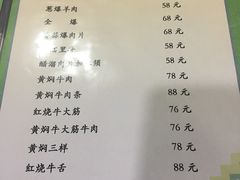 葱爆羊肉 58元
全爆 68元
爆肉片 68元
里 58元
醋溜肉片 58元
黄焖牛肉 78元
黄焖牛肉条 88元
红烧牛大筋 76元
黄焖牛大筋牛肉 76元
黄焖三样 78元
红烧牛舌 88元